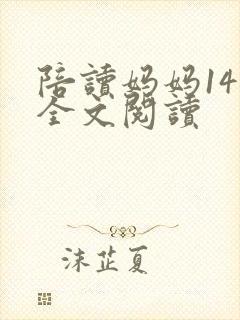 陪讀媽媽14
全文閱讀
沫芷夏